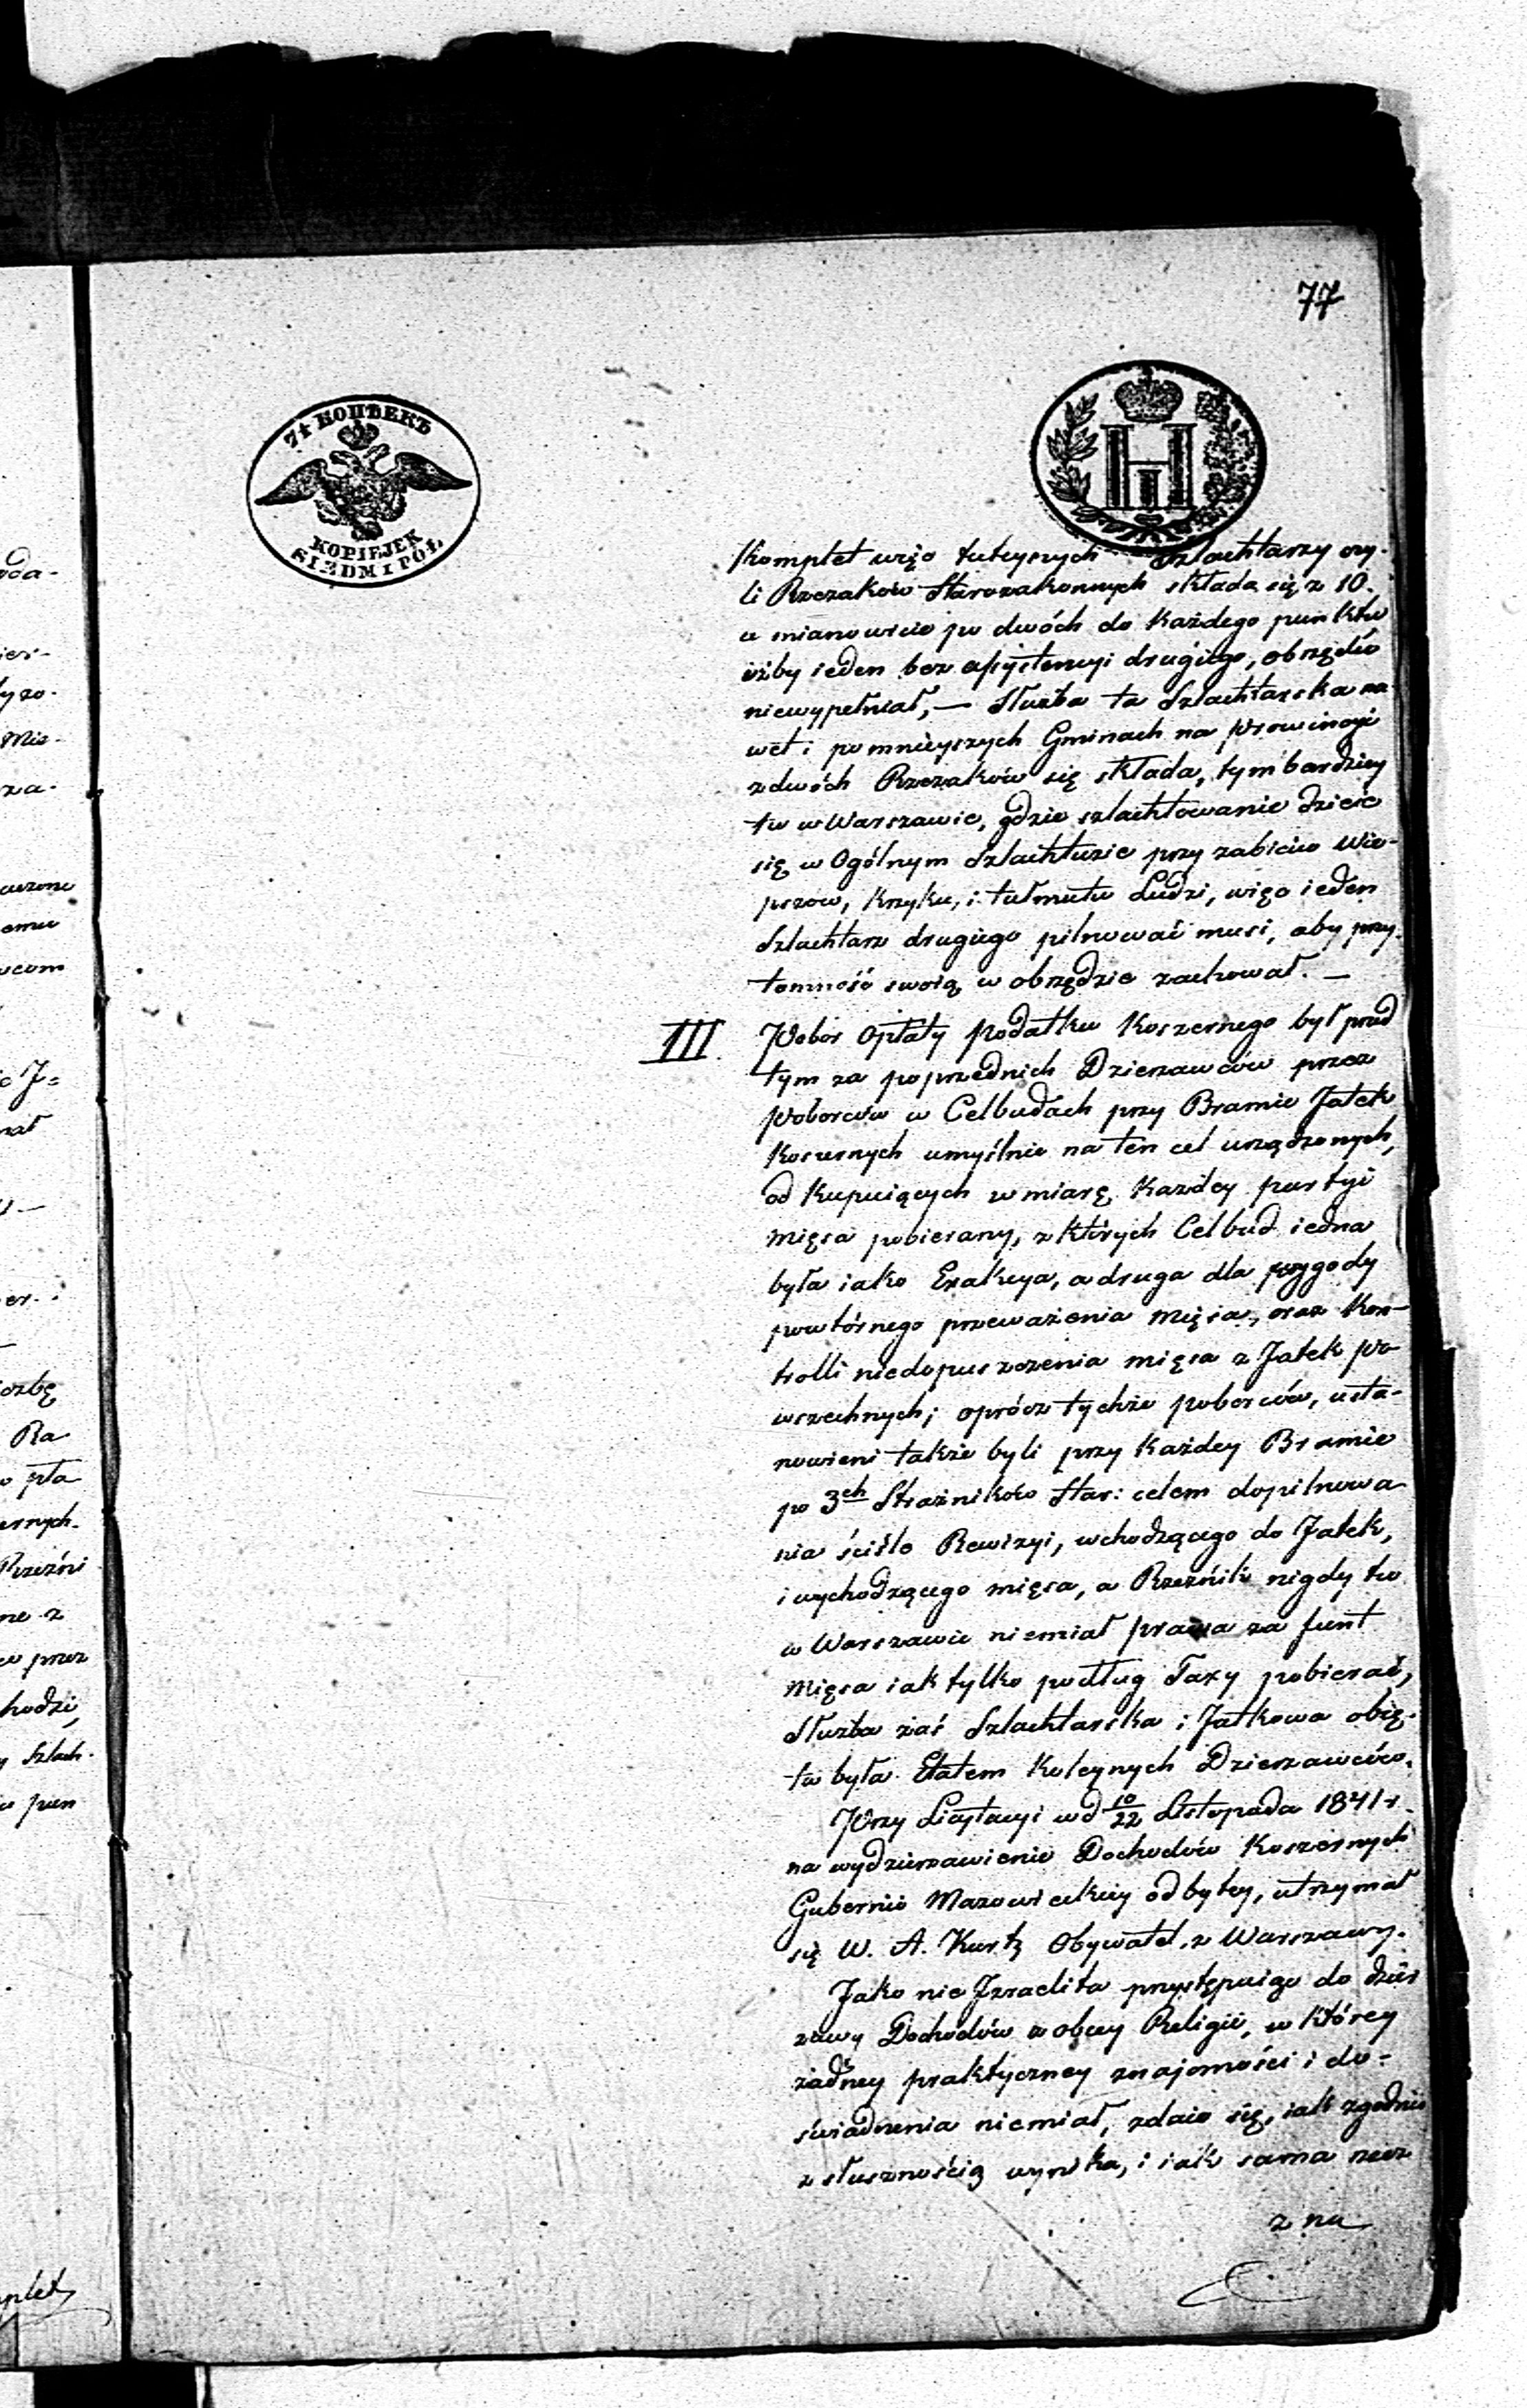 77
7½ КОПѢЕКЪ
KOPIEJEK
SIEDM I PÓŁ
Komplet więc tuteyszych Szlachtarzy czy-
li Rzezaków Starozakonnych składa się z 10.
a mianowicie po dwóch do każdego punktu
iżby ieden bez assystencyi drugiego, obrzędów
niewypełniał, — Służba ta Szlachtarska na-
wet i pomnieyszych Gminach na Prowincyi
z dwóch Rzezaków się składa, tym bardziey
tu w Warszawie, gdzie szlachtowanie dzieie
się w Ogólnym Szlachtuzie przy zabiciu Wie-
przow, krzyku, i tułmutu Ludzi, więc ieden
Szlachtarz drugiego pilnować musi, aby przy-
tomność swoią w obrzędzie zachował. —
III. Pobór Opłaty Podatku Koszernego był przed
tym za poprzednich Dzierzawców przez
Poborców w Celbudach przy Bramie Jatek
Koszernych umyślnie na ten cel urządzonych,
od Kupuiących w miarę każdey partyi
Mięsa pobierany, z których Celbud iedna
była iako Exakcya, a druga dla wygody
powtórnego przeważenia Mięsa, oraz Kon-
trolli niedopuszczenia mięsa z Jatek po-
wszechnych; oprócz tychże poborców, usta-
nowieni także byli przy każdey Bramie
po 3ch Strażników Star: celem dopilnowa
nia ściśle Rewizyi, wchodzącego do Jatek,
i wychodzącego mięsa, a Rzeźnik nigdy tu
w Warszawie niemiał prawa za funt
Mięsa iak tylko podług Taxy pobierać,
Służba zaś Szlachtarska i Jatkowa obię-
ta była Etatem koleynych Dzierzawców.
Przy Licytacyi w d 10/22 Listopada 1841 r.
na wydzierzawienie Dochodów Koszernych
Gubernii Mazowieckiey odbytey, utrzymał
się W. A. Kurtz Obywatel z Warszawy.
Jako nie Izraelita przystępuiąc do dzier
zawy Dochodów z obcey Religii, w którey
żadney praktyczney znajomości i do-
świadczenia niemiał, zdaie się, iak zgodnie
z słusznością wynika, i iak sama rzecz
z na
oda-
ier-
yzo-
Mia-
za-
emu
ycom
er-
Ra
pła
ernych
Rzeźni
ne z
przez
hodzi,
Szlach-
pun
mplet